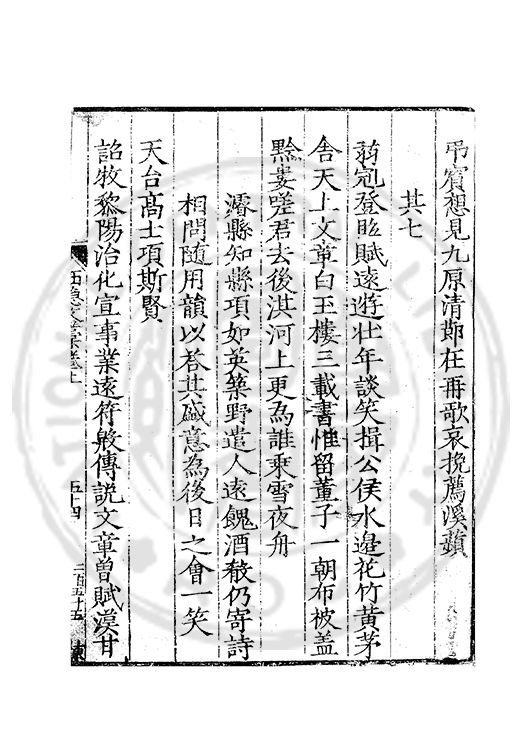 弔賓想見九原清鄭在再歌哀挽薦溪蘋
其七
弱冠登眺賦遠遊壯年談笑揖公侯水邊花竹黃茅
舍天上文章白玉樓三載書帷留董子一朝布被蓋
黔婁嗟君去後洪河上更為誰乘雪夜舟
濬縣知縣項如英築野遣人遠餽酒殽仍寄詩
相問隨用韻以答其盛意為後日之會一笑
天台高士項斯賢
詔牧黎陽治化宣事業遠符殷傅說文章曾賦漢甘
五十四
二百五十五